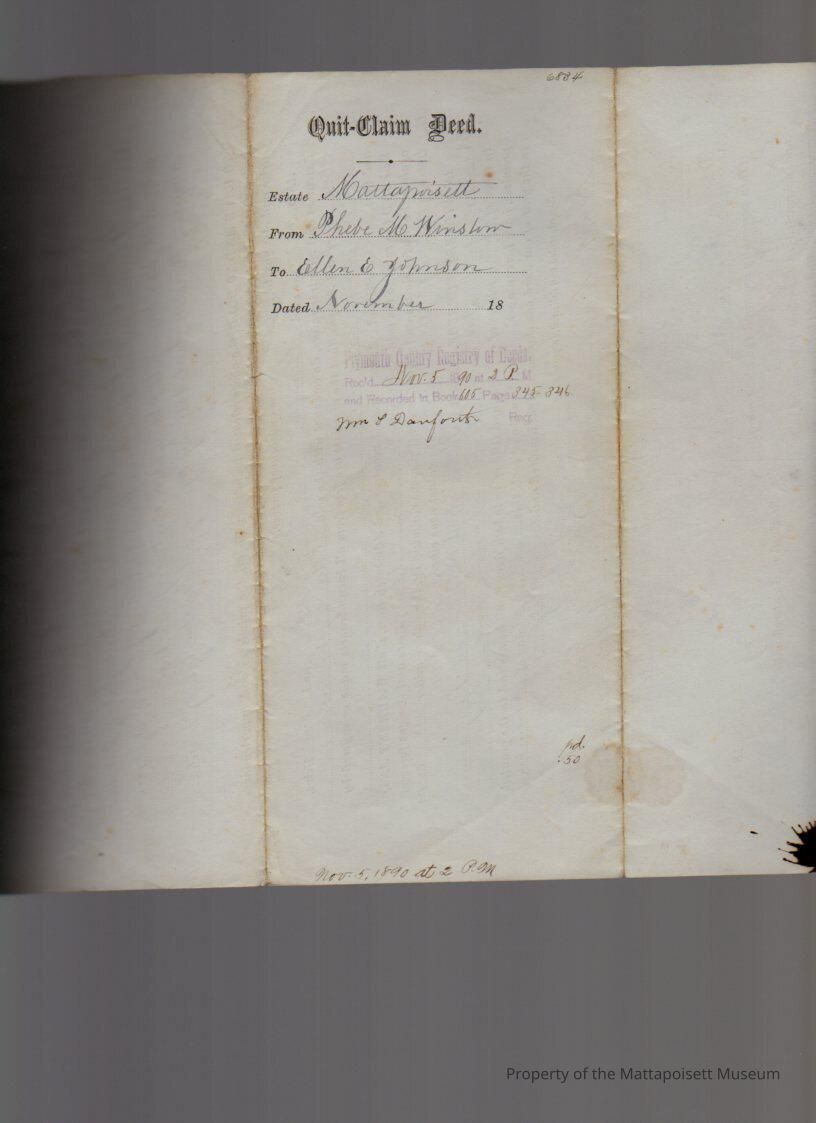 6884
Quit-Claim Deed.
Estate Mattapoisett
From Phebe M Winslow
To Ellen E Johnson
Dated November 18
Plymouth County Registry of Deeds.
Rec'd Nov. 5 1890 at 2 P. M
and Recorded in Book 605 Page 345-346
Wm S Danforth Reg.
pd.
.50
Nov. 5, 1890 at 2 P.M
Property of the Mattapoisett Museum